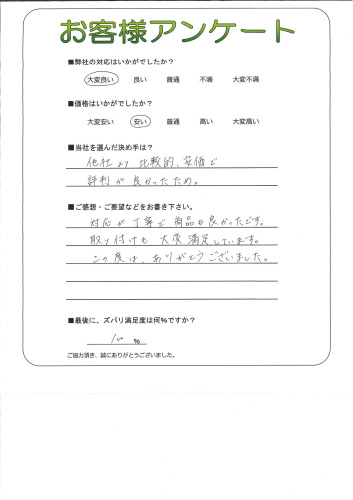 お客様アンケート
■弊社の対応はいかがでしたか?
大変良い 良い 普通 不満 大変不満
■価格はいかがでしたか?
大変安い 安い 普通 高い 大変高い
■当社を選んだ決め手は?
他社より比較的、安価で
評判が良かったため。
■ご感想・ご要望などをお書き下さい。
対応が丁寧で商品も良かったです。
取り付けも大変満足しています。
この度は、ありがとうございました。
■最後に、ズバリ満足度は何%ですか?
100 %
ご協力頂き、誠にありがとうございました。